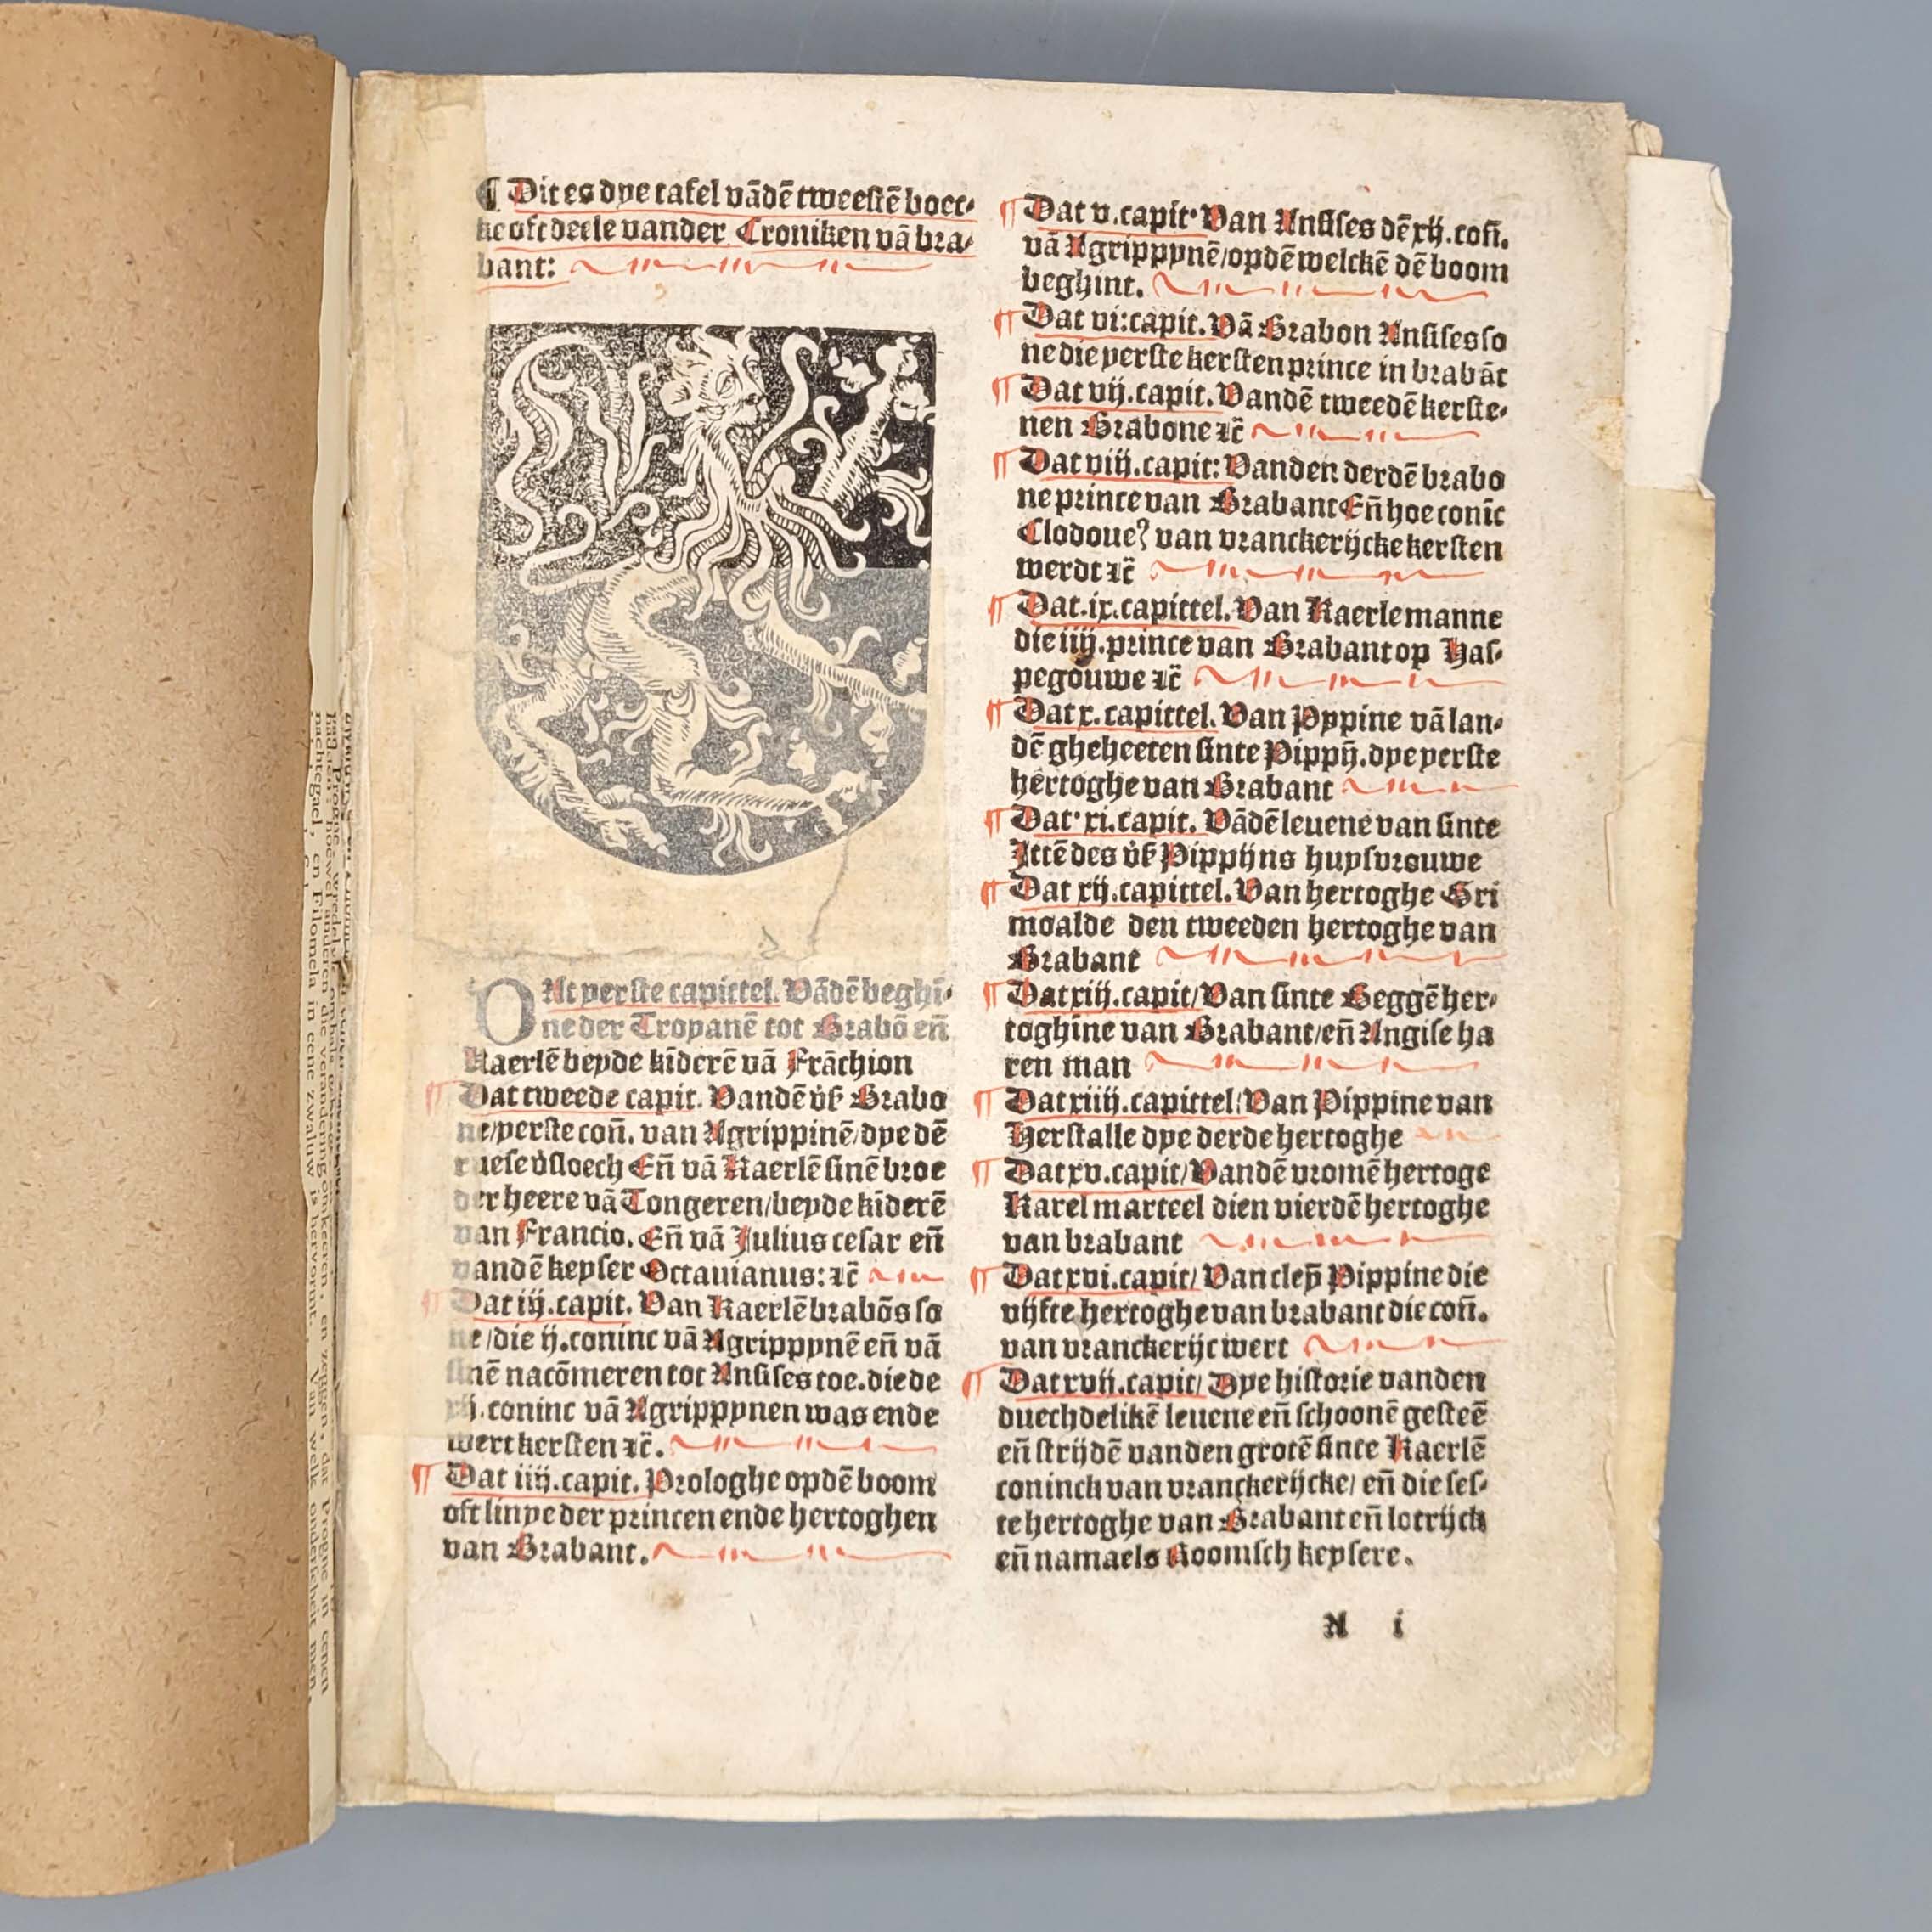 ¶ Dit es dye tafel vādē tweestē boec⸗
ke oft deele vander Croniken vā bra⸗
bant:
DAt yerste capittel. Vādē beghī⸗
ne der Troyanē tot Brabō eñ
Kaerlē beyde kīderē vā Frāchion
Dat tweede capit. Vandē v̓ß Brabo
ne/yerste coñ. van Agrippinē/dye dē
ruese v̓sloech Eñ vā Kaerlē sinē broe
der heere vā Tongeren/beyde kīderē
van Francio. Eñ vā Julius cesar eñ
vandē keyser Octauianus: ⁊c̄
Dat iij.capit. Van Kaerlē brabōs so
ne/die ij.coninc vā Agrippynē eñ vā
sinē nacōmeren tot Ansises toe.die de
xij.coninc vā Agrippynen was ende
wert kersten ⁊c̄.
¶ Dat iiij.capit. Prologhe opdē boom
oft linye der princen ende hertoghen
van Brabant.
¶ Dat v.capit· Van Ansises dē xij.coñ.
vā Agrippynē/opdē welckē dē boom
beghint.
¶ Dat vi:capit. Vā Brabon Ansises so
ne die yerste kersten prince in brabāt
¶ Dat vij.capit. Vandē tweedē kerste⸗
nen Brabone ⁊c̄
¶ Dat viij.capit: Vanden derdē brabo
ne prince van Brabant Eñ hoe conīc
Clodoueꝰ van vranckerijcke kersten
werdt ⁊c̄
¶ Dat.ix.capittel. Van Kaerlemanne
die iiij.prince van Brabant op Has⸗
pegouwe ⁊c̄
¶ Dat x.capittel. Van Pyppine vā lan⸗
dē gheheeten sinte Pippȳ.dye yerste
hertoghe van Brabant
¶ Dat· xi.capit. Vādē leuene van sinte
Ittē des v̓ß Pippijns huysvrouwe
¶ Dat xij.capittel. Van hertoghe Gri
moalde den tweeden hertoghe van
Brabant
¶ Dat xiij.capit/Van sinte Geggē her⸗
toghine van Brabant/eñ Angise ha
ren man
¶ Dat xiiij.capittel/Van Pippine van
Herstalle dye derde hertoghe
¶ Dat xv.capit/Vandē vromē hertoge
Karel marteel dien vierdē hertoghe
van brabant
¶ Dat xvi.capit/ Van cleȳ Pippine die
vijfte hertoghe van brabant die coñ.
van vranckerijc wert
¶ Dat xvij.capit/ Dye historie vanden
duechdelikē leuene eñ schoonē gesteē
eñ strijdē vanden grotē sinte Kaerlē
coninck van vranckerijcke/ eñ die ses⸗
te hertoghe van Brabant eñ lotrijck
eñ namaels Roomsch keysere.
A i